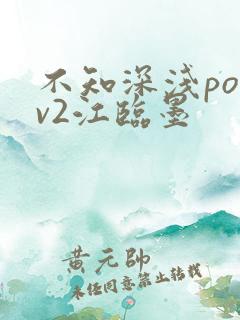 不知深浅po
v2江临墨
黄元帅
未经同意禁止转载